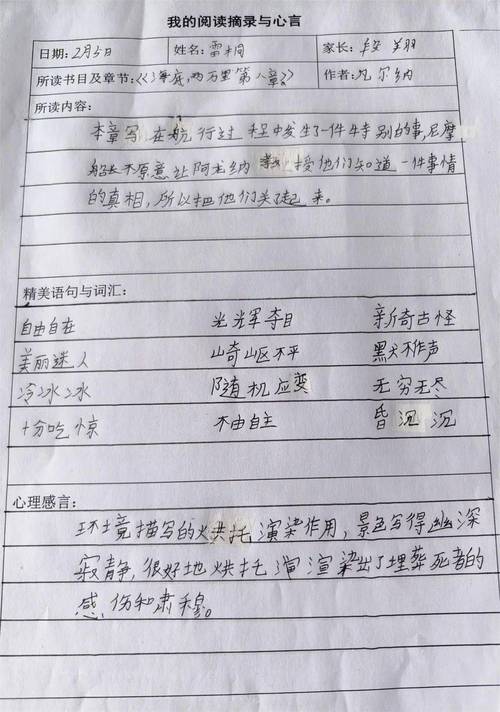 我的阅读摘录与心言
日期: 2月5日 姓名: 雷桐 家长: 段
所读书目及章节:《海底两万里第八章》 作者: 凡尔纳
所读内容:
本章写在航行过程中发生了一件特别的事,尼摩
船长不原意让阿龙纳 教授他们知道一件事情
的真相,所以把他们关了起来。
精美语句与词汇:
自由自在 光辉夺目 新奇古怪
美丽迷人 崎岖不平 默不作声
冷冰冰 随机应变 无穷无尽
十分吃惊 不由自主 昏沉沉
心理感言:
环境描写的烘托渲染作用,景色写得幽深
寂静,很好地烘托 渲染出了埋葬死者的
感伤和肃穆。